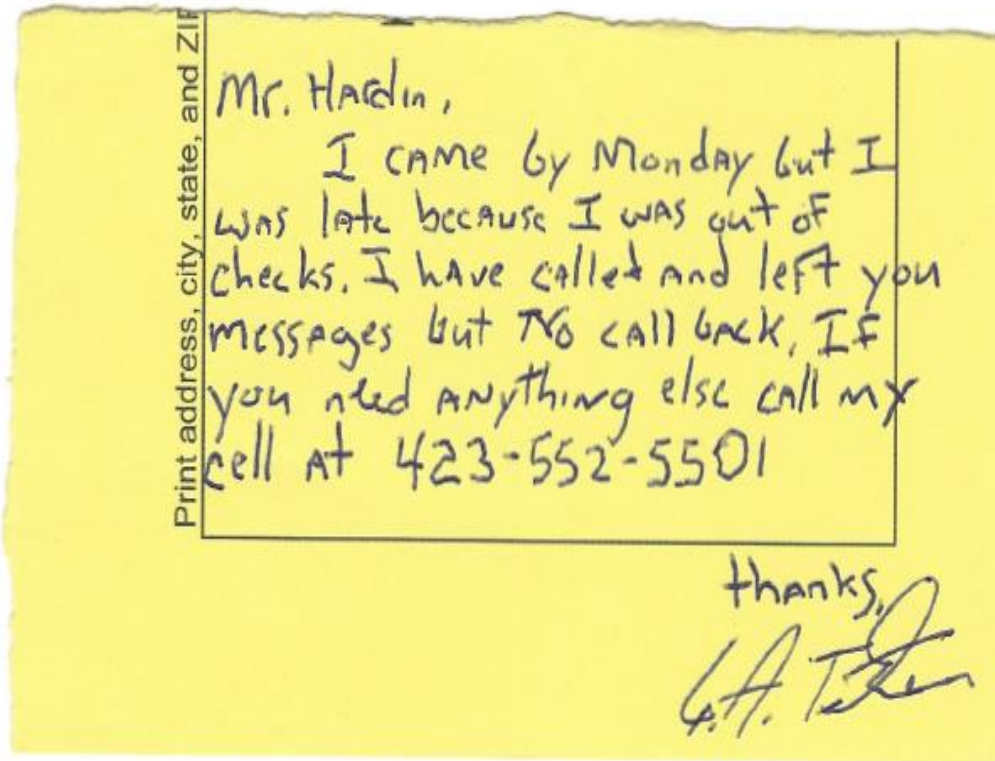 Print address, city, state, and ZIP
Mr. Hardin,
I came by Monday but I
was late because I was out of
checks. I have called and left you
messages but No call back. If
you need anything else call my
cell at 423-552-5501
thanks,